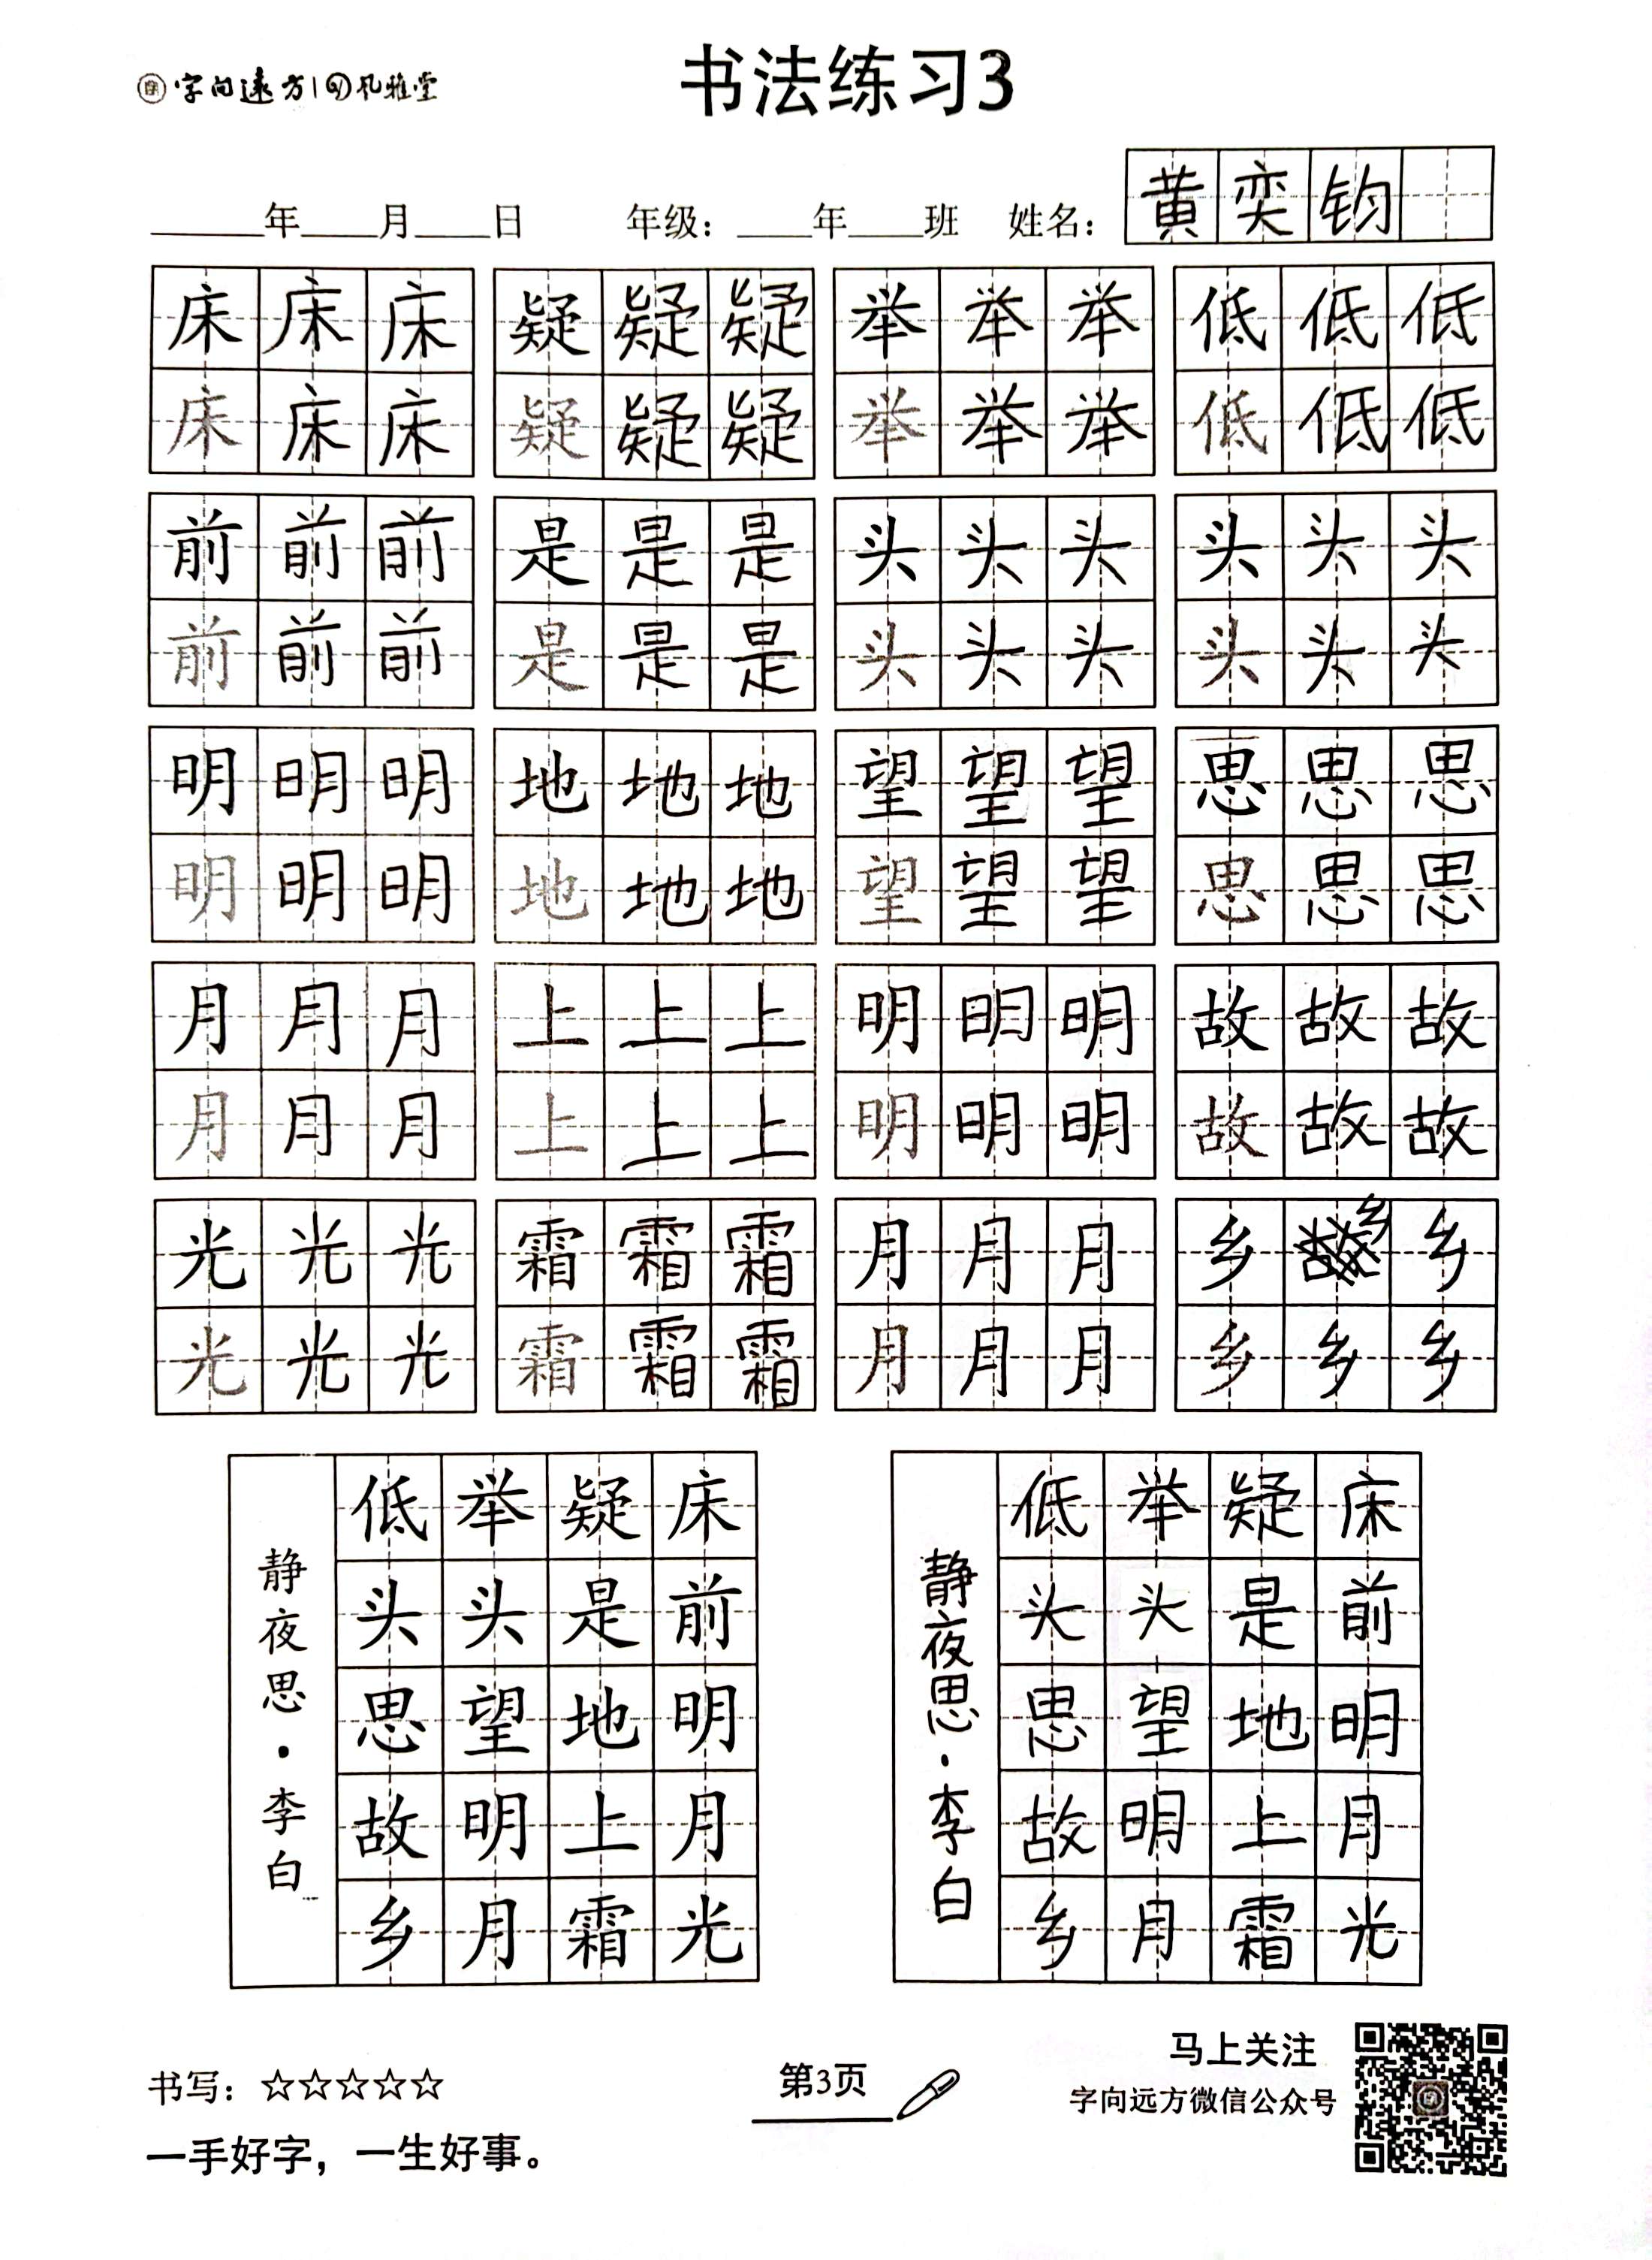 字向远方 风雅堂
书法练习3
年 月 日 年级： 年 班 姓名：黄奕钧
床床床 疑疑疑 举举举 低低低
床床床 疑疑疑 举举举 低低低
前前前 是是是 头头头 头头头
前前前 是是是 头头头 头头头
明明明 地地地 望望望 思思思
明明明 地地地 望望望 思思思
月月月 上上上 明明明 故故故
月月月 上上上 明明明 故故故
光光光 霜霜霜 月月月 乡乡乡
光光光 霜霜霜 月月月 乡乡乡
床前明月光
疑是地上霜
举头望明月
低头思故乡
静夜思·李白
床前明月光
疑是地上霜
举头望明月
低头思故乡
静夜思·李白
书写：☆☆☆☆☆
一手好字，一生好事。
第3页
马上关注
字向远方微信公众号